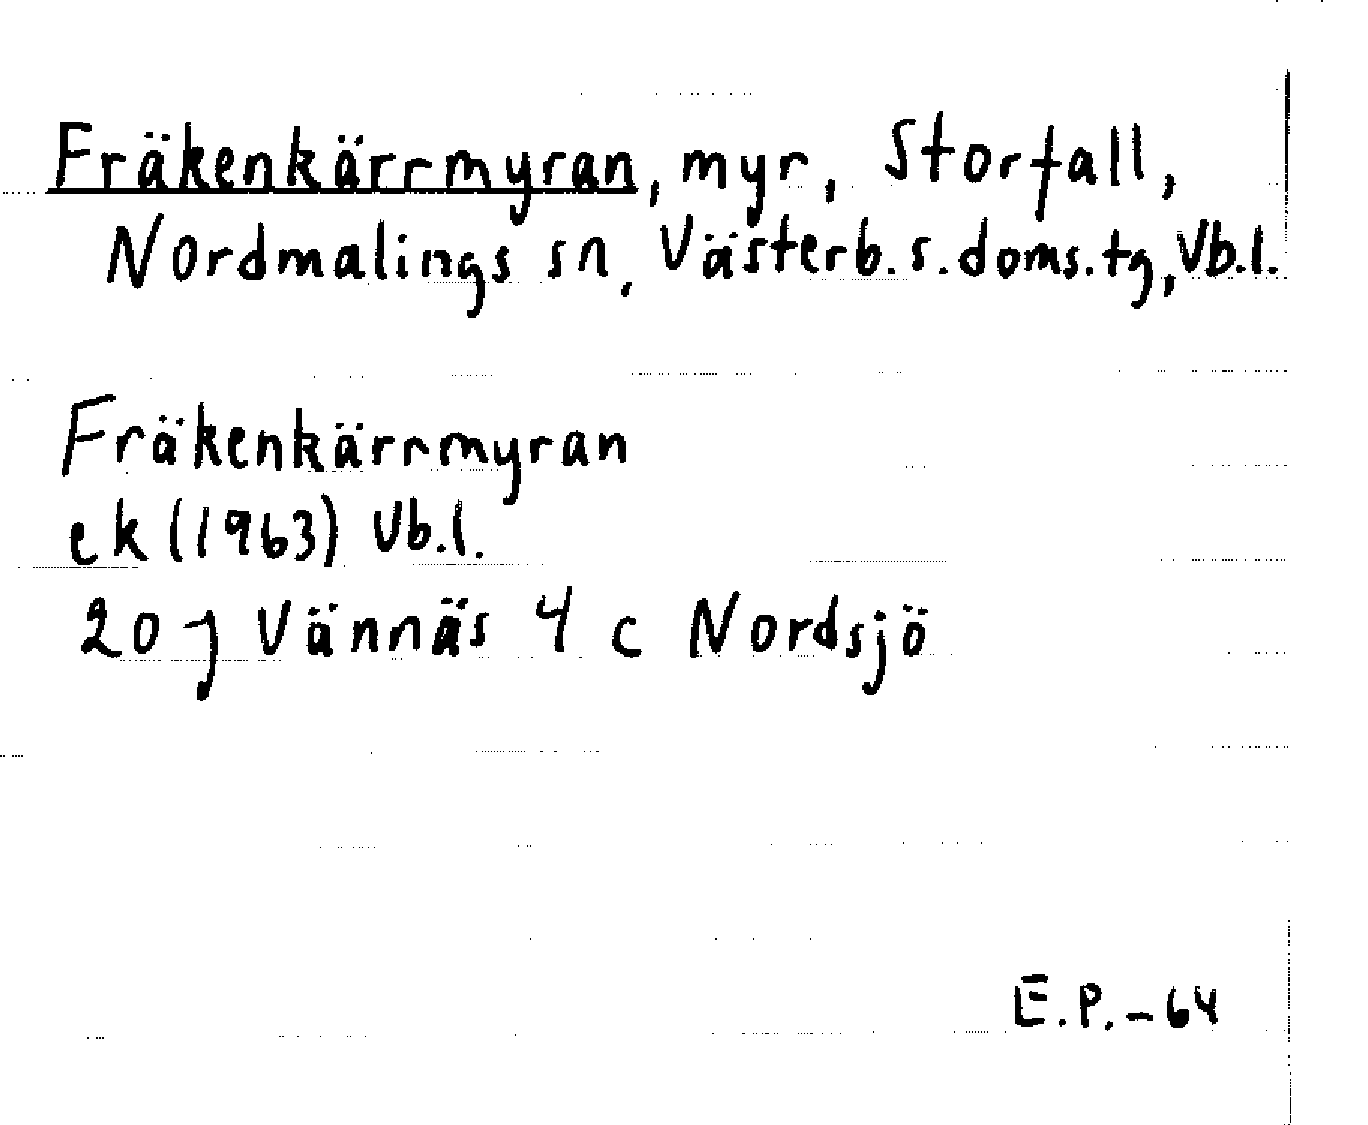 Fräkenkärrmyran, myr, Storfall,
Nordmalings sn, Västerb. s. doms. tg, Vb.l.
Fräkenkärrmyran
ek (1963) Vb.l.
20 J Vännäs 4 c Nordsjö
E.P. - 64